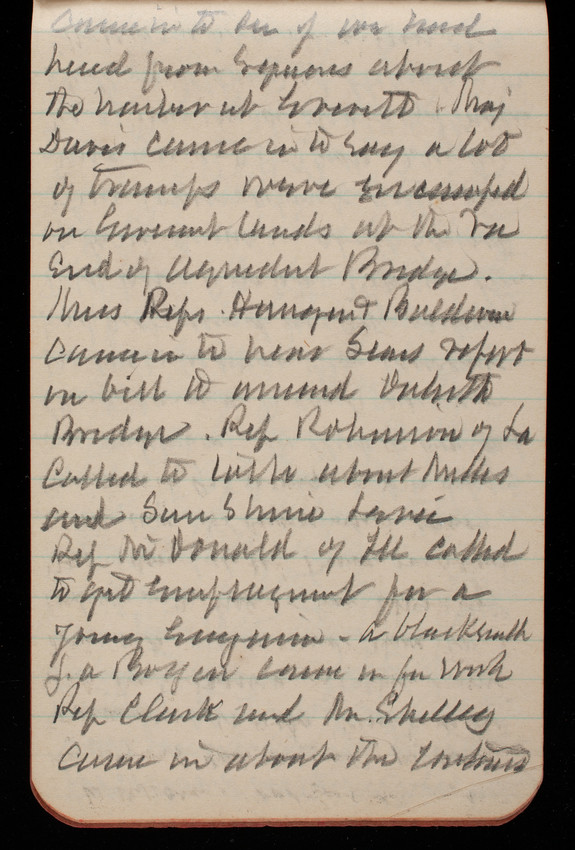 Came in to see if we had
heard from Symons about
the harbor at Everett. Maj
Davis came in to say a lot
of tramps were encamped
on Goverment lands at the Va
End of Aqueduct Bridge.
Reps.
came in to hear Sears report
on bill to amend Duluth
Bridge. Rep Robinson of La
called to talk about
and Sunshine Levee
Rep McDonald of Ill called
to get employment for a
young Engineer - a blacksmith
came in for work
Rep Clark and Mr. Shelley
came in about the